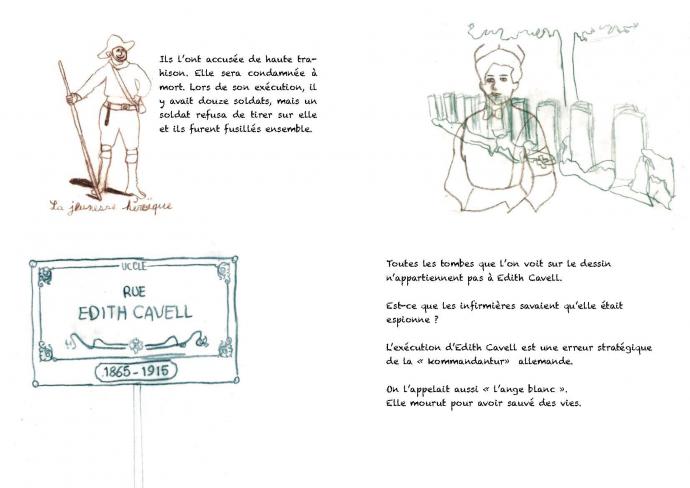 Ils l'ont accusée de haute tra-
hison. Elle sera condamnée à
mort. Lors de son exécution, il
y avait douze soldats, mais un
soldat refusa de tirer sur elle
et ils furent fusillés ensemble.
La jeunesse héroïque
UCCLE
RUE
EDITH CAVELL
1865-1915
Toutes les tombes que l'on voit sur le dessin
n'appartiennent pas à Edith Cavell.
Est-ce que les infirmières savaient qu'elle était
espionne ?
L'exécution d'Edith Cavell est une erreur stratégique
de la « kommandantur» allemande.
On l'appelait aussi « l'ange blanc ».
Elle mourut pour avoir sauvé des vies.